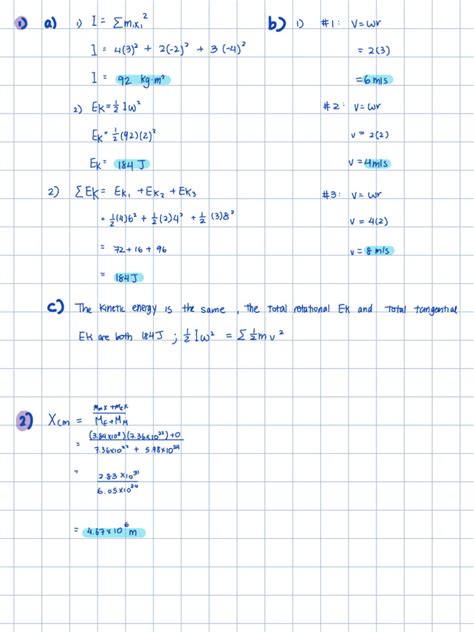 1) a) 1) I = ∑mᵢxᵢ²
I = 4(3)² + 2(-2)² + 3(-4)²
I = 92 kg·m²
2) Ek = ½Iω²
Ek = ½(92)(2)²
Ek = 184 J
2) ∑Ek = Ek₁ + Ek₂ + Ek₃
= ½(4)6² + ½(2)4² + ½(3)8²
= 72 + 16 + 96
= 184 J
b) 1) #1: v = ωr
= 2(3)
= 6 m/s
#2: v = ωr
v = 2(2)
v = 4 m/s
#3: v = ωr
v = 4(2)
v = 8 m/s
c) The kinetic energy is the same, the total rotational Ek and total tangential
Ek are both 184J ; ½Iω² = ∑½mv²
2) Xcm =
M_E + M_M
= (3.84×10⁸)(7.36×10²²)+0
7.36×10²² + 5.98×10²⁴
= 2.83×10³¹
6.05×10²⁴
= 4.67×10⁶ m